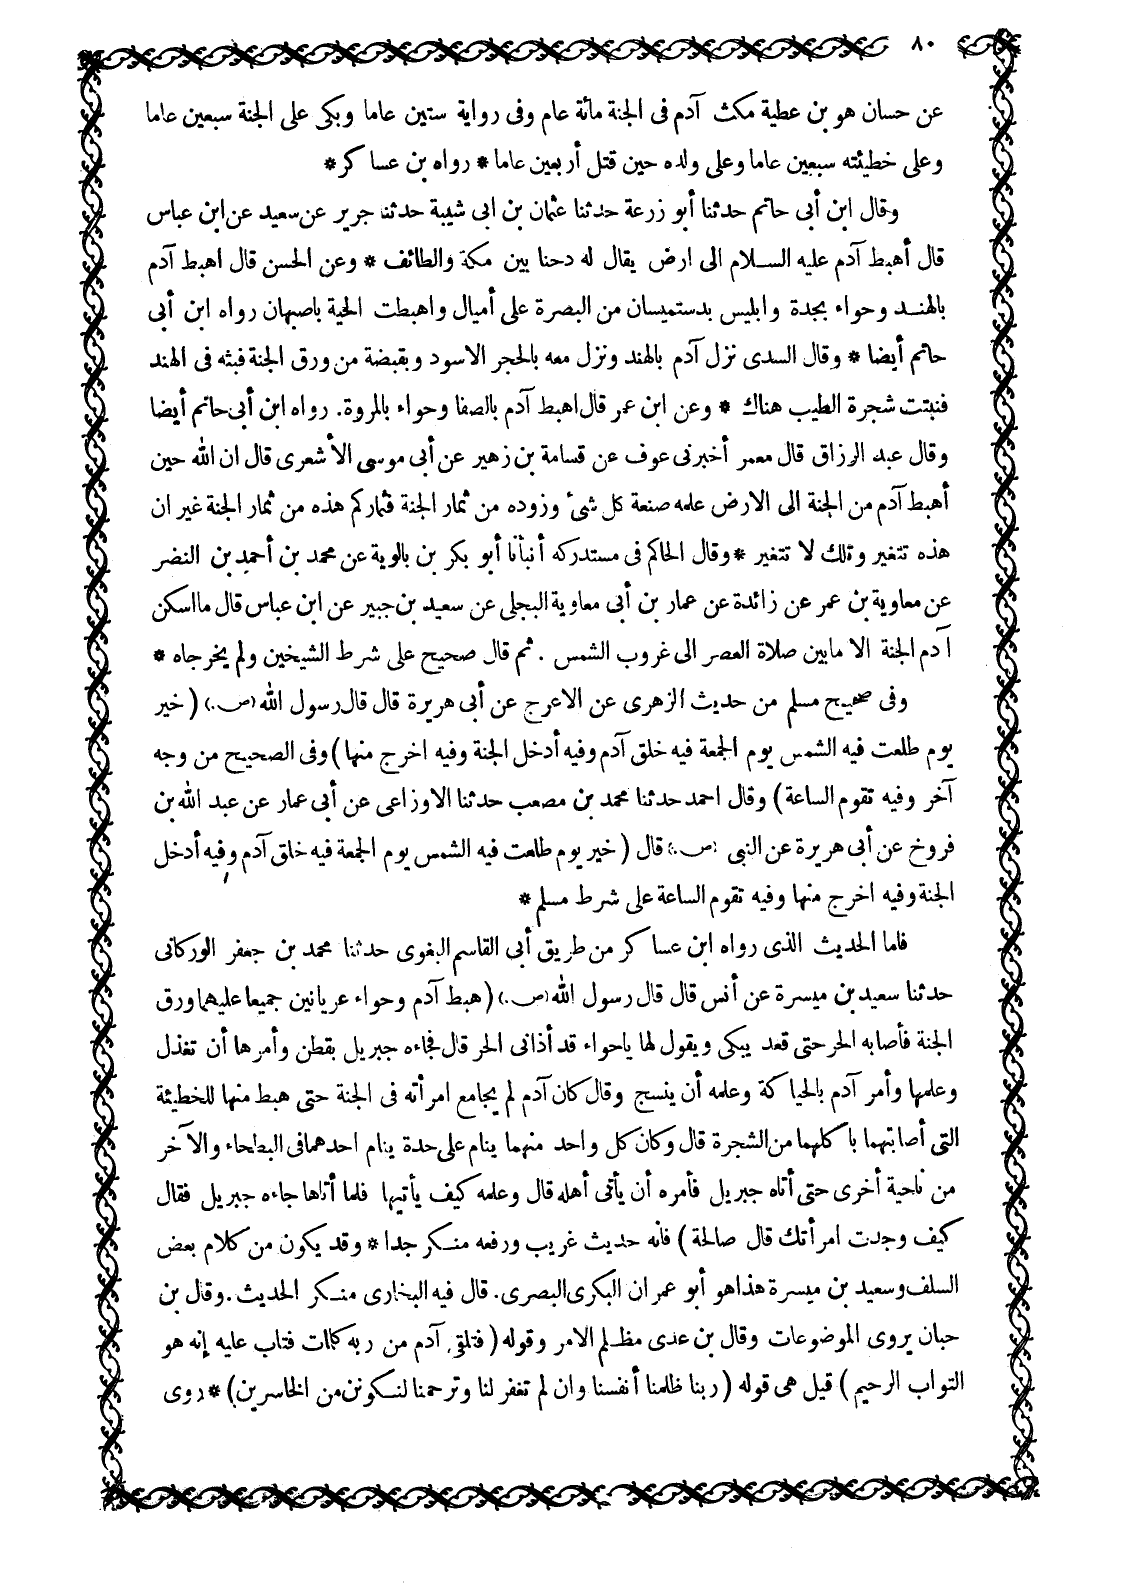 ٨٠
عن حسان هو بن عطية مكث آدم فى الجنة مائة عام وفى رواية ستين عاما وبكى على الجنة سبعين عاما
وعلى خطيئته سبعين عاما وعلى ولده حين قتل أربعين عاما * رواه بن عساكر *
وقال ابن أبى حاتم حدثنا أبو زرعة حدثنا عثمان بن ابى شيبة حدثنا جرير عن سعيد عن ابن عباس
قال أهبط آدم عليه السلام الى ارض يقال له دحنا بين مكة والطائف * وعن الحسن قال اهبط آدم
بالهند وحواء بجدة وابليس بدستميسان من البصرة على أميال واهبطت الحية باصبهان رواه ابن أبى
حاتم أيضا * وقال السدى نزل آدم بالهند ونزل معه بالحجر الاسود وبقبضة من ورق الجنة فبثه فى الهند
فنبتت شجرة الطيب هناك * وعن ابن عمر قال اهبط آدم بالصفا وحواء بالمروة. رواه ابن أبى حاتم أيضا
وقال عبد الرزاق قال معمر أخبرنى عوف عن قسامة بن زهير عن أبى موسى الأشعرى قال ان الله حين
أهبط آدم من الجنة الى الارض علمه صنعة كل شئ وزوده من ثمار الجنة فثماركم هذه من ثمار الجنة غير ان
هذه تتغير وتلك لا تتغير * وقال الحاكم فى مستدركه أنبأنا أبو بكر بن بالوية عن محمد بن أحمد بن النضر
عن معاوية بن عمر عن زائدة عن عمار بن أبى معاوية البجلى عن سعيد بن جبير عن ابن عباس قال ما اسكن
آدم الجنة الا ما بين صلاة العصر الى غروب الشمس . ثم قال صحيح على شرط الشيخين ولم يخرجاه *
وفى صحيح مسلم من حديث الزهرى عن الاعرج عن أبى هريرة قال قال رسول الله (ص.) ( خير
يوم طلعت فيه الشمس يوم الجمعة فيه خلق آدم وفيه أدخل الجنة وفيه اخرج منها ) وفى الصحيح من وجه
آخر وفيه تقوم الساعة ) وقال احمد حدثنا محمد بن مصعب حدثنا الاوزاعى عن أبى عمار عن عبد الله بن
فروخ عن أبى هريرة عن النبى (ص.) قال ( خير يوم طلعت فيه الشمس يوم الجمعة فيه خلق آدم وفيه أدخل
الجنة وفيه اخرج منها وفيه تقوم الساعة على شرط مسلم *
فاما الحديث الذى رواه ابن عساكر من طريق أبى القاسم البغوى حدثنا محمد بن جعفر الوركانى
حدثنا سعيد بن ميسرة عن أنس قال قال رسول الله (ص.) ( هبط آدم وحواء عريانين جميعا عليهما ورق
الجنة فأصابه الحر حتى قعد يبكى ويقول لها ياحواء قد أذانى الحر قال فجاءه جبريل بقطن وأمرها أن تغذل
وعلمها وأمر آدم بالحياكة وعلمه أن ينسج وقال كان آدم لم يجامع امرأته فى الجنة حتى هبط منها للخطيئة
التى أصابتهما باكلهما من الشجرة قال وكان كل واحد منهما ينام على حدة ينام احدهما فى البطحاء والآخر
من ناحية أخرى حتى أتاه جبريل فأمره أن يأتى أهله قال وعلمه كيف يأتيها فلما أتاها جاءه جبريل فقال
كيف وجدت امرأتك قال صالحة ) فانه حديث غريب ورفعه منكر جدا * وقد يكون من كلام بعض
السلف وسعيد بن ميسرة هذا هو أبو عمران البكرى البصرى. قال فيه البخارى منكر الحديث . وقال بن
حبان يروى الموضوعات وقال بن عدى مظلم الامر وقوله ( فتلقى آدم من ربه كلمات فتاب عليه إنه هو
التواب الرحيم ) قيل هى قوله ( ربنا ظلمنا أنفسنا وان لم تغفر لنا وترحمنا لنكونن من الخاسرين ) * روى